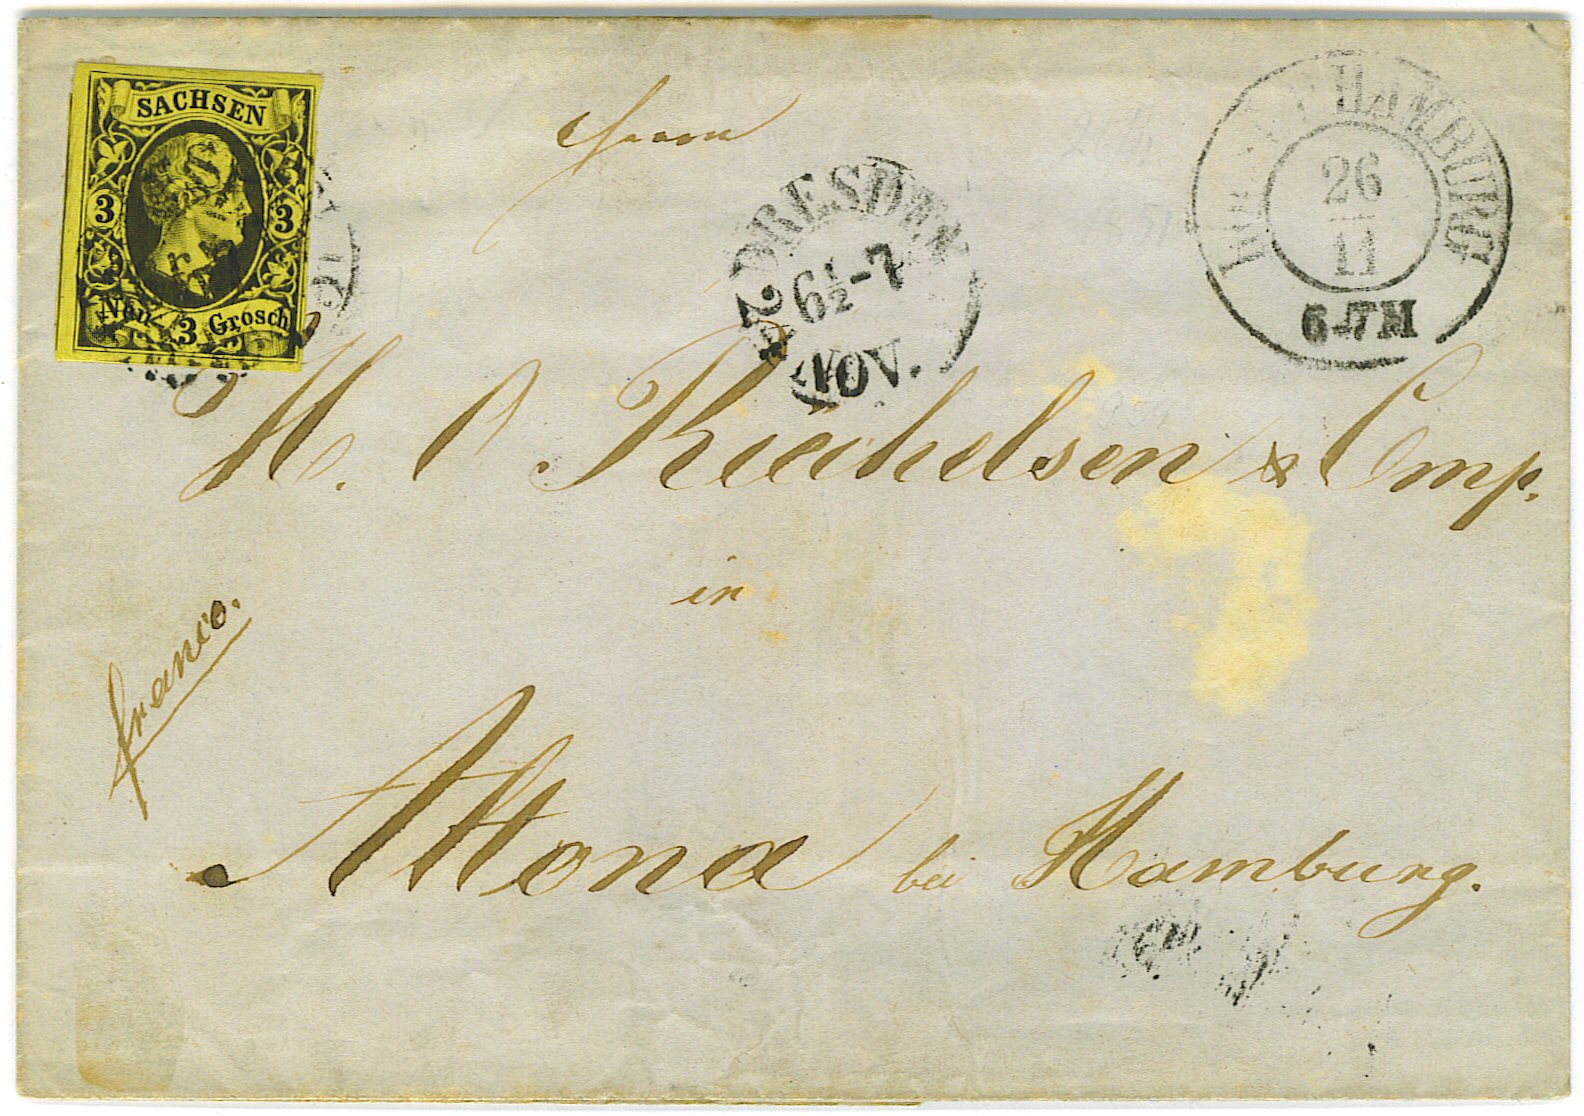 SACHSEN
3 3
Neu 3 Grosch
Herrn
DRESDEN
6½-7
NOV.
HAMBURG
26
11
6-7M
H. P. & Cmp.
in
franco.
Altona bei Hamburg.